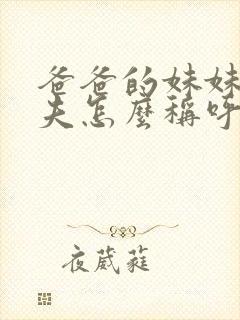 爸爸的妹妹
夫怎麼稱呼
夜葳蕤